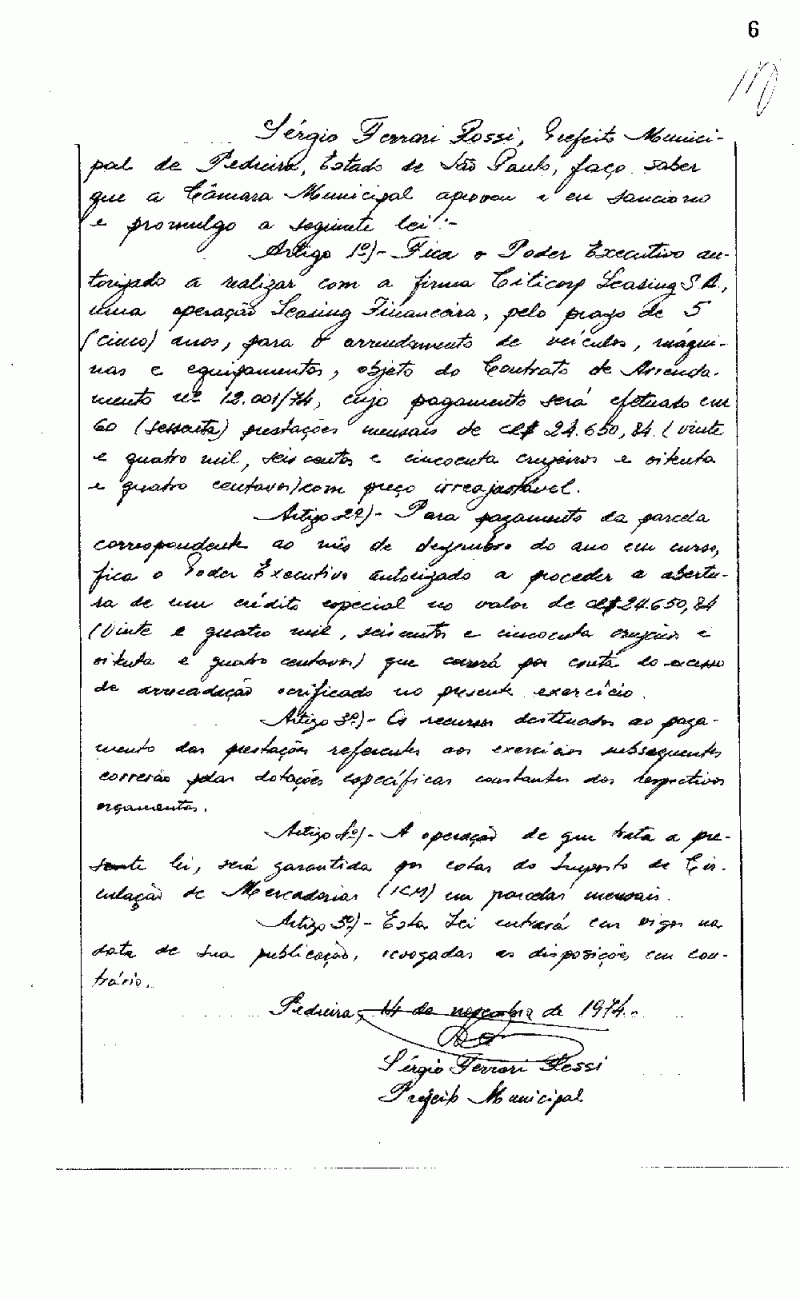 6
Sérgio Ferrari Rossi, Prefeito Munici-
pal de Pedreira, Estado de São Paulo, faço saber
que a Câmara Municipal aprovou e eu sanciono
e promulgo a seguinte lei:-
Artigo 1º)- Fica o Poder Executivo au-
torizado a realizar com a firma Citicorp Leasing S.A.,
uma operação Leasing Financeira, pelo prazo de 5
(cinco) anos, para o arrendamento de veículos, máqui-
nas e equipamentos, objeto do Contrato de Arrenda-
mento nº 12.001/74, cujo pagamento será efetuado em
60 (sessenta) prestações mensais de Cr$ 24.650,84 (vinte
e quatro mil, seiscentos e cincoenta cruzeiros e oitenta
e quatro centavos) com preço irreajustável.
Artigo 2º)- Para pagamento da parcela
correspondente ao mês de dezembro do ano em curso,
fica o Poder Executivo autorizado a proceder a abertu-
ra de um crédito especial no valor de Cr$ 24.650,84
(vinte e quatro mil, seiscentos e cincoenta cruzeiros e
oitenta e quatro centavos) que correrá por conta do excesso
de arrecadação verificado no presente exercício.
Artigo 3º)- Os recursos destinados ao paga-
mento das prestações referentes aos exercícios subsequentes
correrão pelas dotações específicas constantes dos respectivos
orçamentos.
Artigo 4º)- A operação de que trata a pre-
sente lei, será garantida por cotas do Imposto de Cir-
culação de Mercadorias (ICM) em parcelas mensais.
Artigo 5º)- Esta Lei entrará em vigor na
data de sua publicação, revogadas as disposições em con-
trário.
Pedreira, 14 de novembro de 1974.-
Sérgio Ferrari Rossi
Prefeito Municipal